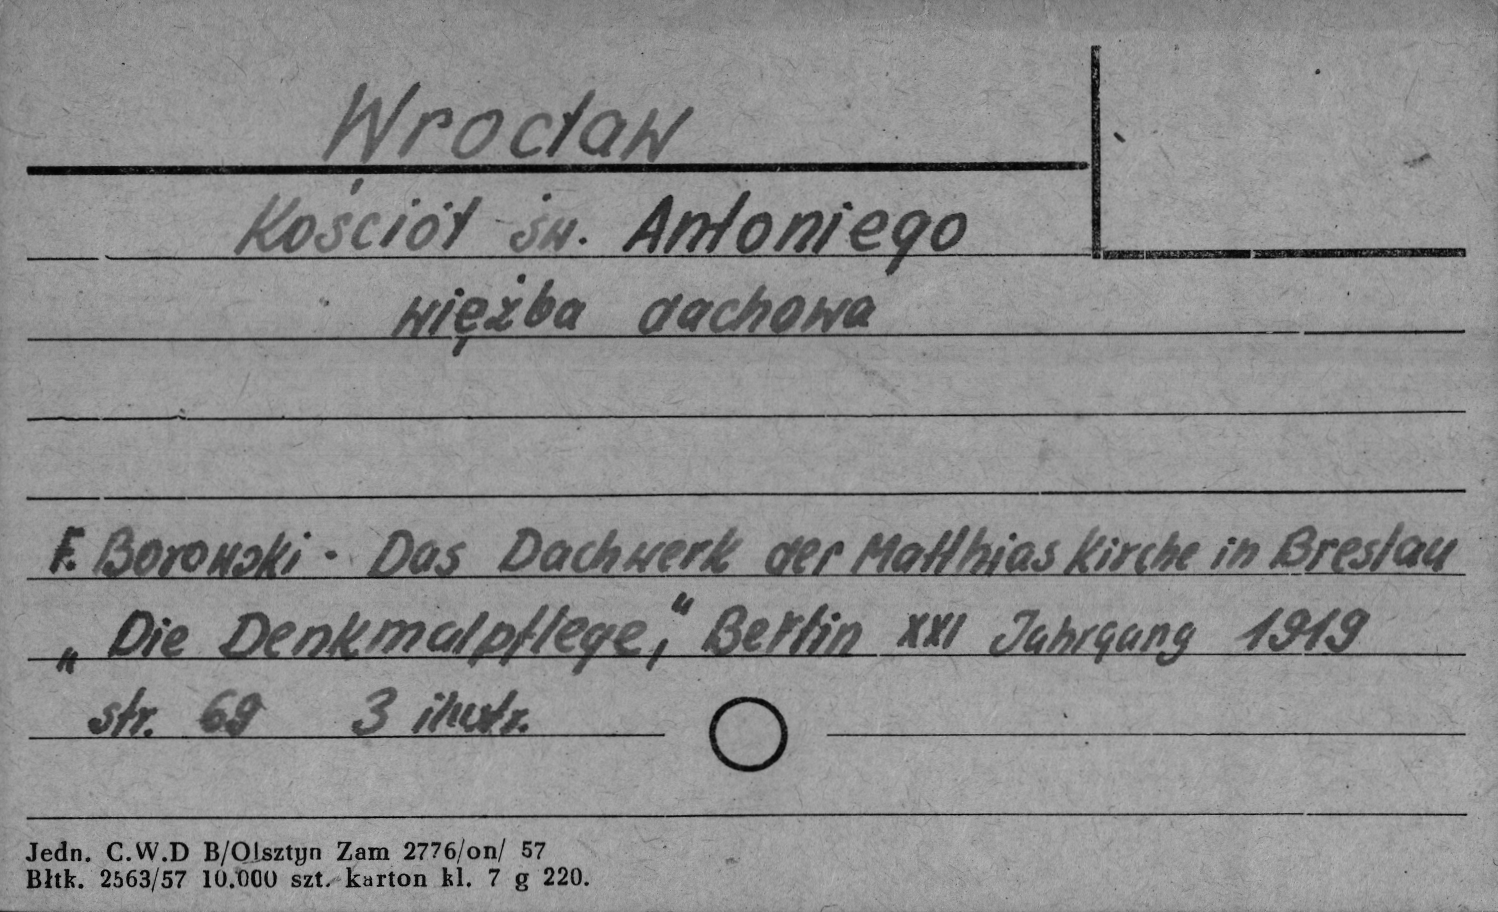 Wrocław
Kościół św. Antoniego
więźba dachowa
F. Borowski - Das Dachwerk der Matthias Kirche in Breslau
„Die Denkmalpflege," Berlin XXI Jahrgang 1919
str. 69 3 ilustr.
Jedn. C.W.D B/Olsztyn Zam 2776/on/ 57
Błtk. 2563/57 10.000 szt. karton kl. 7 g 220.